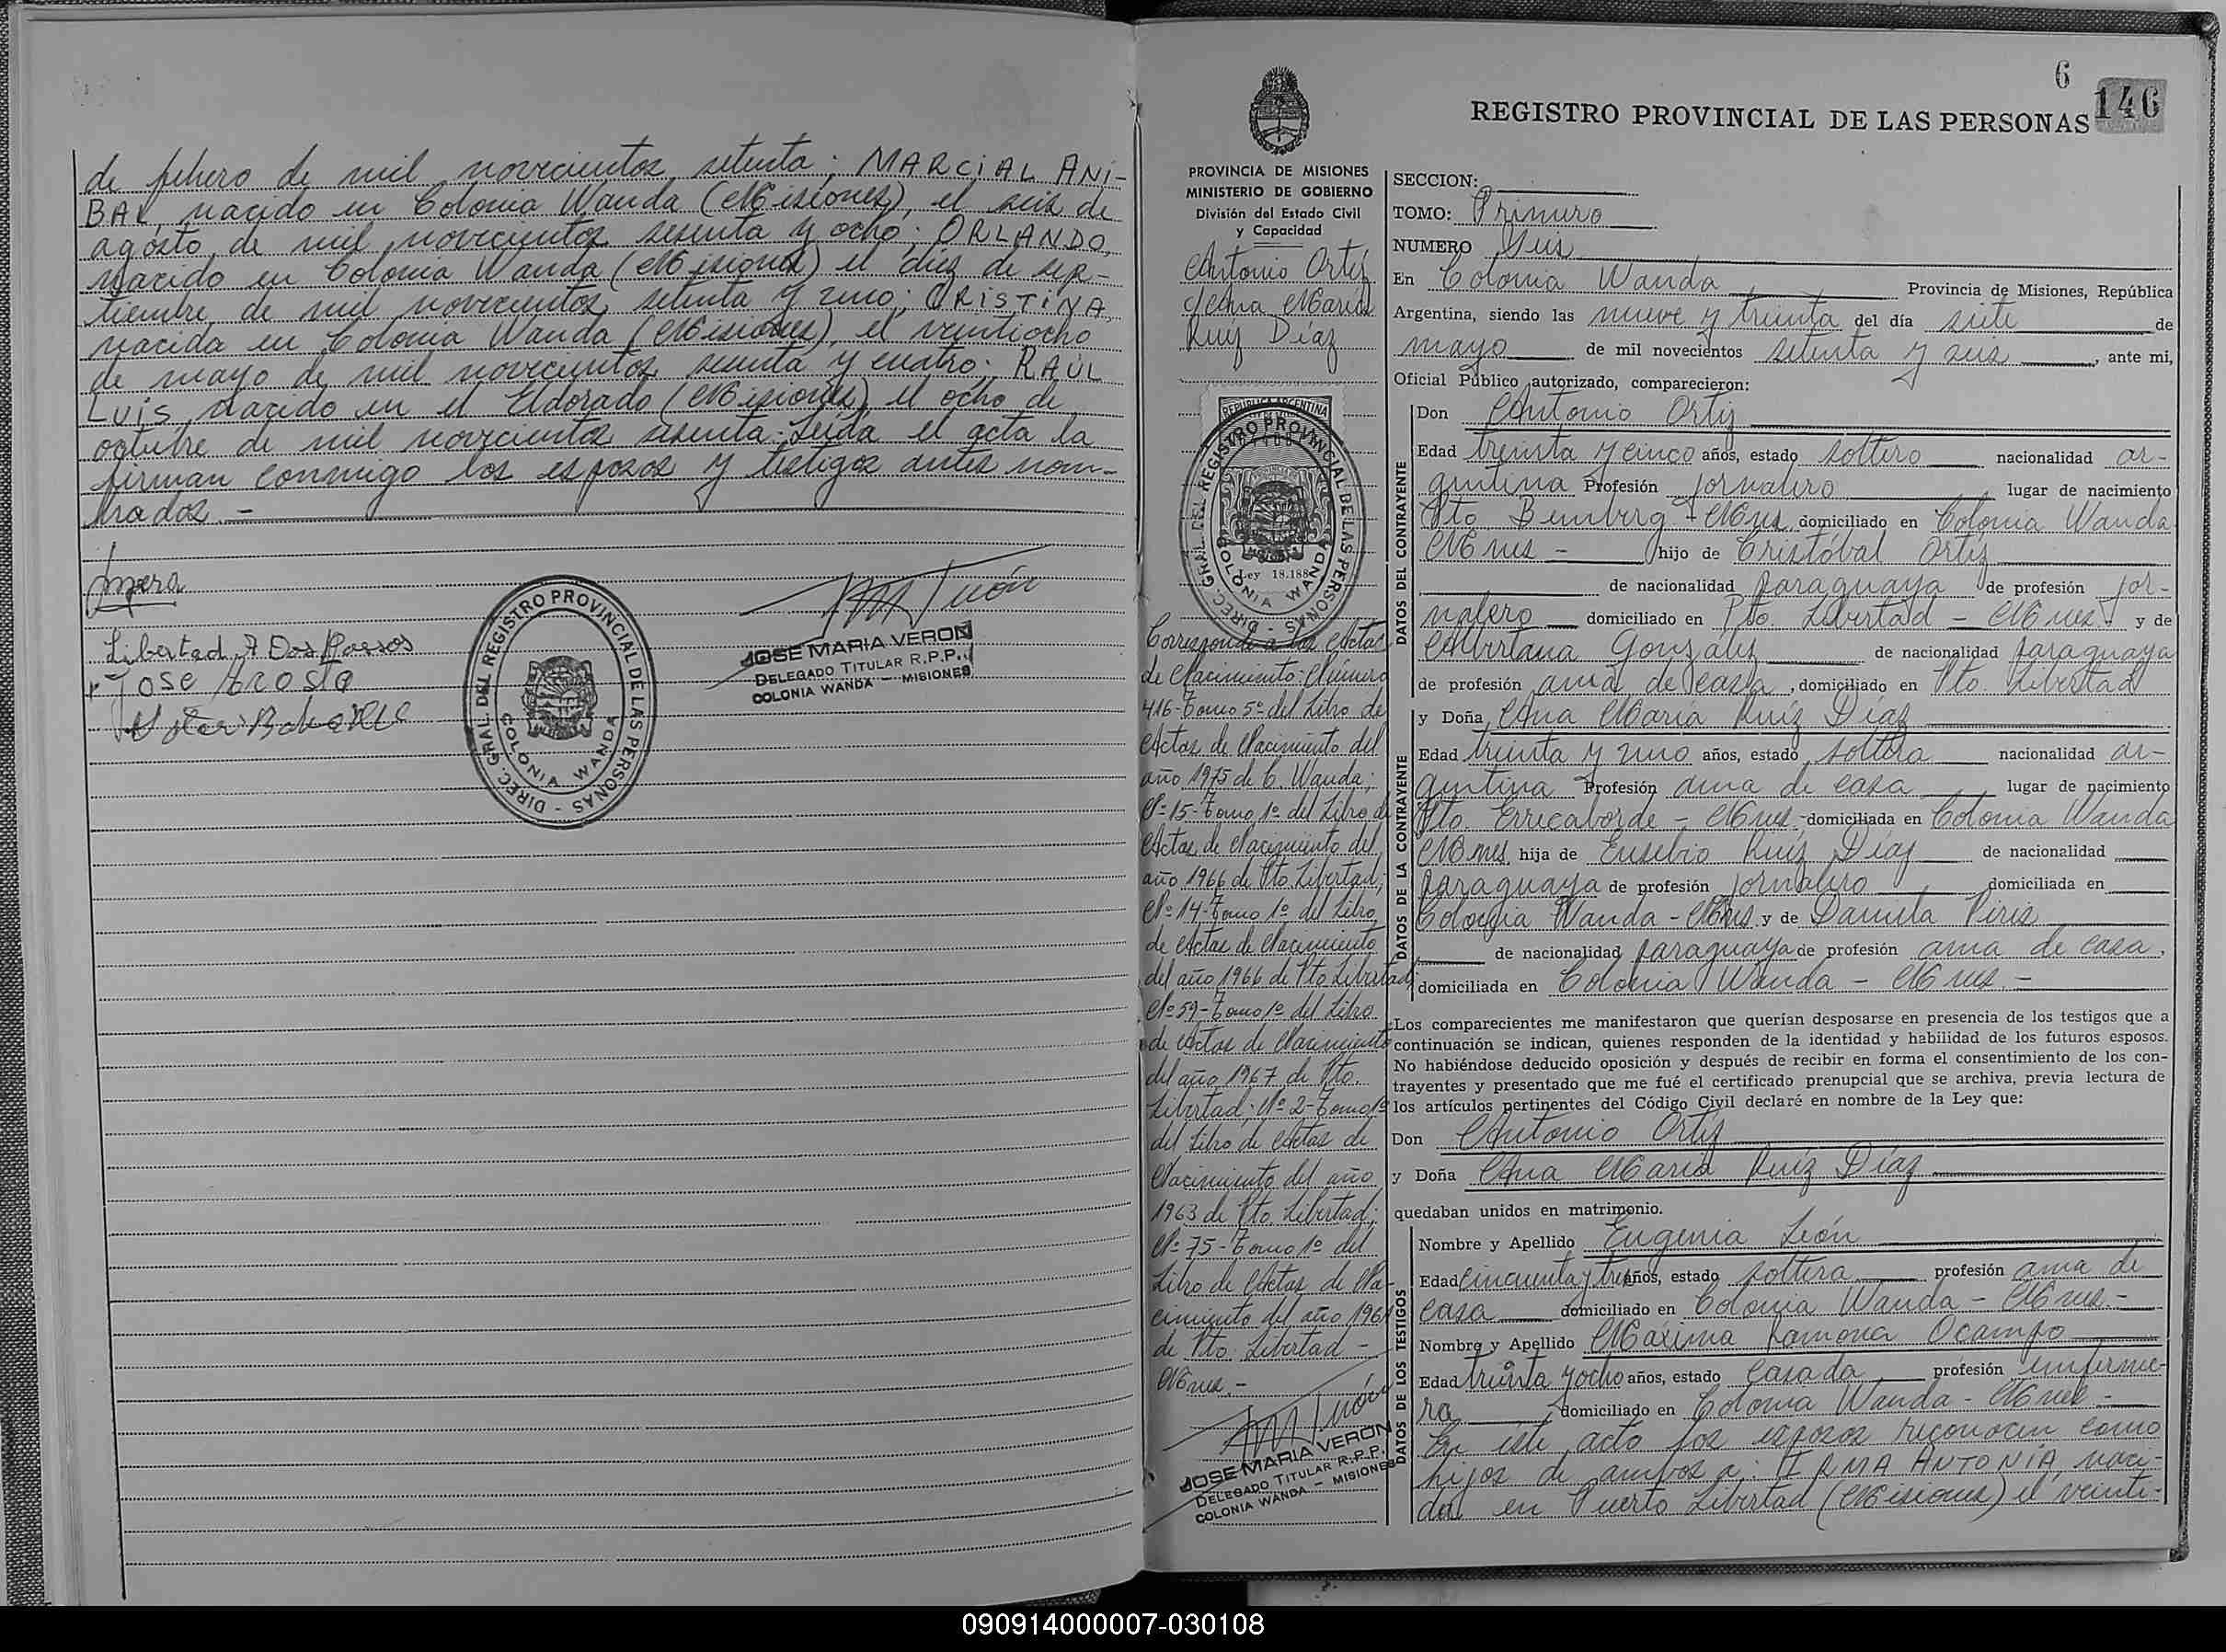 de febrero de mil novecientos setenta; MARCIAL ANI-
BAL, nacido en Colonia Wanda (Misiones), el seis de
agosto de mil novecientos sesenta y ocho; ORLANDO,
nacido en Colonia Wanda (Misiones) el diez de sep-
tiembre de mil novecientos setenta y uno; CRISTINA,
nacida en Colonia Wanda (Misiones), el veintiocho
de mayo de mil novecientos sesenta y cuatro; RAÚL
LUIS, nacido en el Eldorado (Misiones), el ocho de
octubre de mil novecientos sesenta. Leída el acta la
firman conmigo los esposos y testigos antes nom-
brados.-
Libertad A Dos Passos
JOSE
DIREC. GRAL. DEL REGISTRO PROVINCIAL DE LAS PERSONAS
COLONIA WANDA
JOSE MARIA VERON
DELEGADO TITULAR R.P.P.
COLONIA WANDA - MISIONES
6
146
REGISTRO PROVINCIAL DE LAS PERSONAS
PROVINCIA DE MISIONES
MINISTERIO DE GOBIERNO
División del Estado Civil
y Capacidad
Antonio Ortíz
Ana María
Ruiz Díaz
REPUBLICA ARGENTINA
DIREC. GRAL. DEL REGISTRO PROVINCIAL DE LAS PERSONAS
COLONIA WANDA
Ley 18.188
Corresponde a las Actas
de Nacimiento: Número
416-Tomo 5º del Libro de
Actas de Nacimiento del
año 1975 de C. Wanda;
Nº 15-Tomo 1º del Libro de
Actas de Nacimiento del
año 1966 de Pto. Libertad;
Nº 14-Tomo 1º del Libro
de Actas de Nacimiento
del año 1966 de Pto Libertad;
Nº 59-Tomo 1º del Libro
de Actas de Nacimiento
del año 1967 de Pto.
Libertad; Nº 2-Tomo 1º
del Libro de Actas de
Nacimiento del año
1963 de Pto. Libertad;
Nº 75-Tomo 1º del
Libro de Actas de Na-
cimiento del año
de Pto. Libertad -
Mnes.-
JOSE MARIA VERON
DELEGADO TITULAR R.P.P.
COLONIA WANDA - MISIONES
SECCION:
TOMO: Primero
NUMERO Seis
En Colonia Wanda Provincia de Misiones, República
Argentina, siendo las nueve y treinta del día siete de
mayo de mil novecientos setenta y seis, ante mi,
Oficial Público autorizado, comparecieron:
DATOS DEL CONTRAYENTE
Don Antonio Ortíz
Edad treinta y cinco años, estado soltero nacionalidad ar-
gentina Profesión jornalero lugar de nacimiento
Pto Bemberg - Mnes domiciliado en Colonia Wanda
Mnes - hijo de Cristóbal Ortíz
de nacionalidad paraguaya de profesión jor-
nalero domiciliado en Pto. Libertad - Mnes. y de
Albertana González de nacionalidad paraguaya
de profesión ama de casa, domiciliado en Pto. Libertad
DATOS DE LA CONTRAYENTE
y Doña Ana María Ruíz Díaz
Edad treinta y uno años, estado soltera nacionalidad ar-
gentina Profesión ama de casa lugar de nacimiento
Pto. Errecaborde - Mnes. domiciliada en Colonia Wanda
Mnes. hija de Eusebio Ruíz Díaz de nacionalidad
paraguaya de profesión jornalero domiciliada en
Colonia Wanda - Mnes y de Daniela Piris
de nacionalidad paraguaya de profesión ama de casa,
domiciliada en Colonia Wanda - Mnes.-
Los comparecientes me manifestaron que querían desposarse en presencia de los testigos que a
continuación se indican, quienes responden de la identidad y habilidad de los futuros esposos.
No habiéndose deducido oposición y después de recibir en forma el consentimiento de los con-
trayentes y presentado que me fué el certificado prenupcial que se archiva, previa lectura de
los artículos pertinentes del Código Civil declaré en nombre de la Ley que:
Don Antonio Ortíz
y Doña Ana María Ruíz Díaz
quedaban unidos en matrimonio.
DATOS DE LOS TESTIGOS
Nombre y Apellido Eugenia León
Edad cincuenta y tres años, estado soltera profesión ama de
casa domiciliado en Colonia Wanda - Mnes.-
Nombre y Apellido Máxima Ramona Ocampo
Edad treinta y ocho años, estado casada profesión enferme-
ra domiciliado en Colonia Wanda - Mnes -
En éste acto los esposos reconocen como
hijos de ambos a: IRMA ANTONIA, naci-
da en Puerto Libertad (Misiones) el veinti-
090914000007-030108